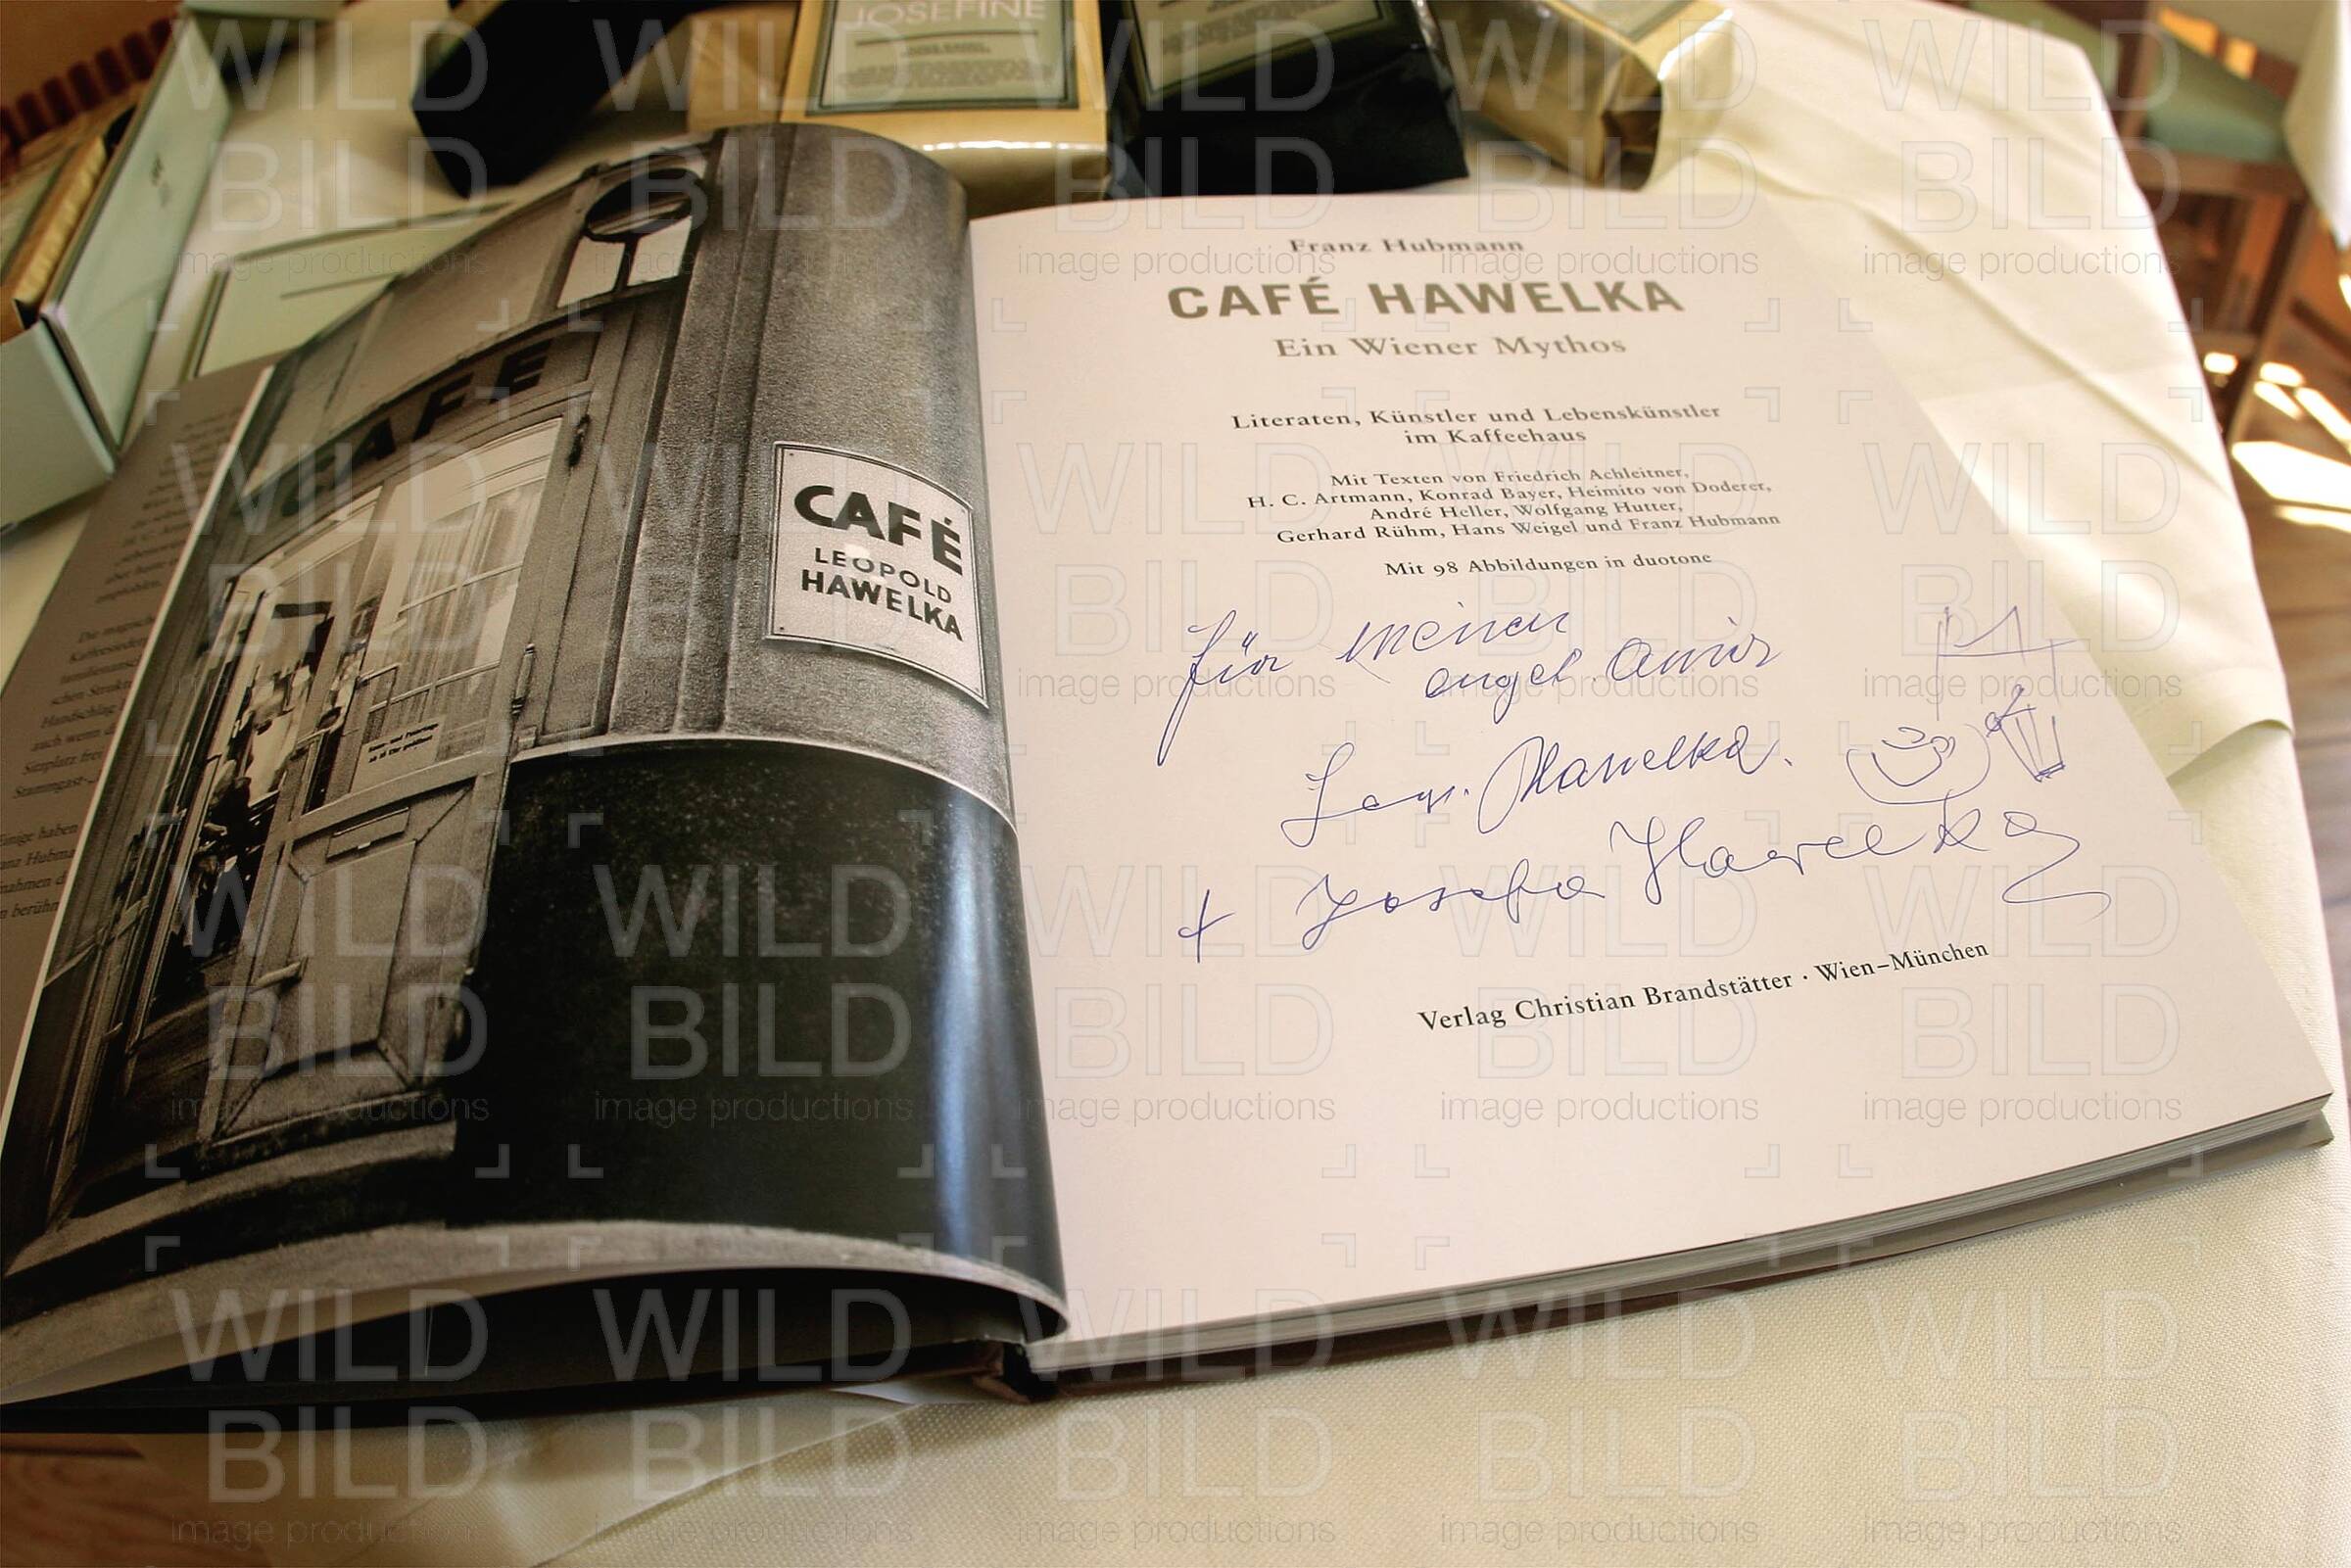 JOSEFINE
CAFE
CAFÉ
LEOPOLD
HAWELKA
Franz Hubmann
CAFÉ HAWELKA
Ein Wiener Mythos
Literaten, Künstler und Lebenskünstler
im Kaffeehaus
Mit Texten von Friedrich Achleitner,
H. C. Artmann, Konrad Bayer, Heimito von Doderer,
André Heller, Wolfgang Hutter,
Gerhard Rühm, Hans Weigel und Franz Hubmann
Mit 98 Abbildungen in duotone
für meinen
Leop. Hawelka.
+ Josefa Hawelka
Verlag Christian Brandstätter · Wien–München
WILD
BILD
image productions